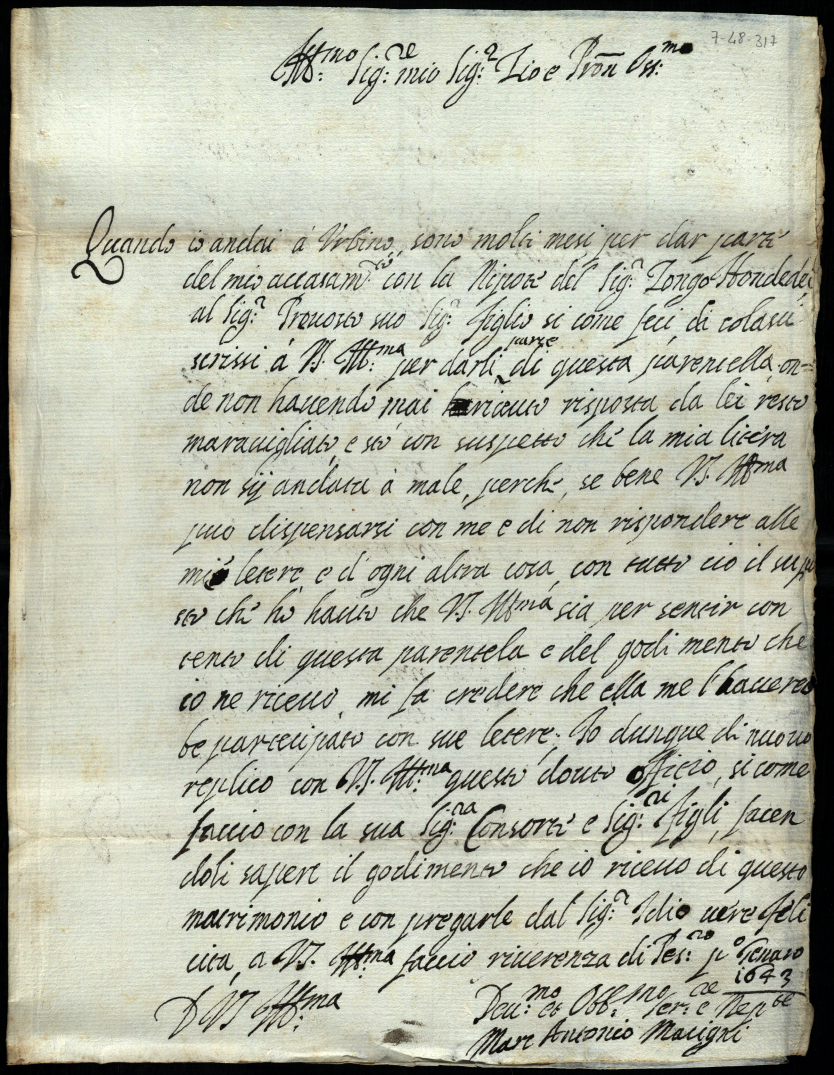 7-48-317
Ill:mo Sig:re mio Sig:r Zio e Pron Oss:mo
Quando io andai à Urbino, sono molti mesi per dar parte
del mio accasam:to con la Nipote del Sig:r Longo Hondedei
al Sig:r Prevosto suo Sig:r figlio si come feci, di colasù
scrissi à V.S. Ill:ma per darli parte di questa parentella, on=
de non havendo mai riceuto risposta da lei resto
maravigliato, e stò con suspetto che la mia litera
non sij andata à male, perche, se bene V.S. Ill:ma
può dispensarsi con me e di non rispondere alle
mie letere e d'ogni altra cosa, con tutto ciò il supo
sto che hò hauto che V.S. Ill:ma sia per sentir con
tento di questa parentela e del godimento che
io ne riceuo, mi fa credere che ella me l'havereb
be partecipato con sue letere. Io dunque di nuovo
replico con V.S. Ill:ma questo douto officio, si come
faccio con la sua Sig:ra Consorte e Sig:ri figli, facen
doli sapere il godimento che io riceuo di questo
matrimonio e con pregarle dal Sig:r Idio vere feli
cità, a V.S. Ill:ma faccio riverenza di Pes:ro p:o Genaro
1643
D V.S. Ill:ma
Deu:mo et Obb:mo ser:re e Nep:te
Marc Antonio Macigni